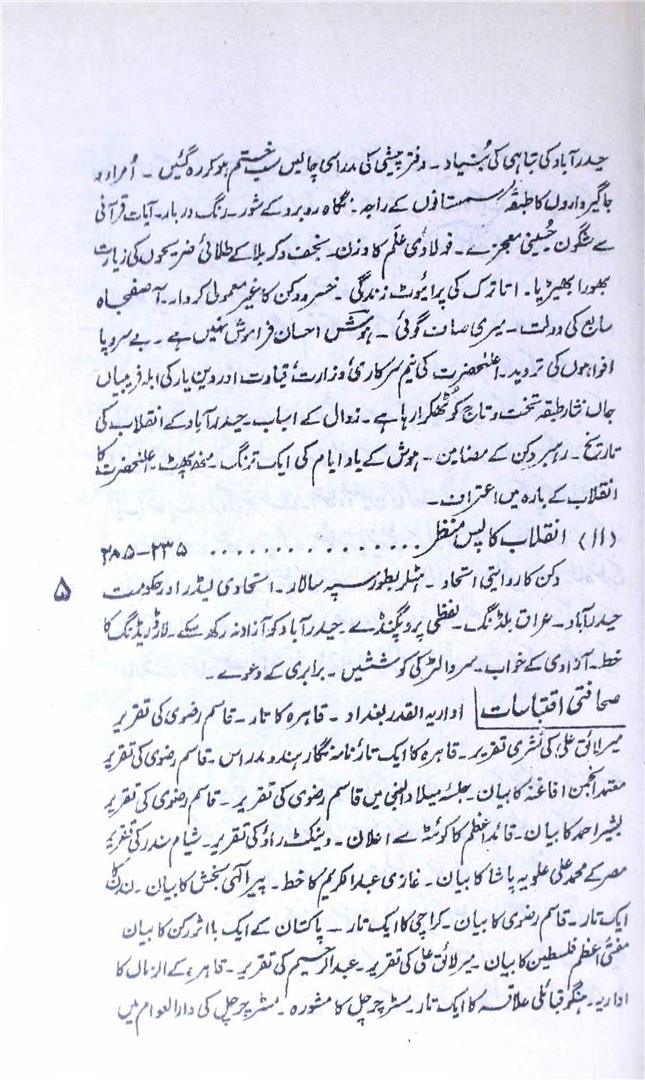 حیدرآباد کی تباہی کی بُنیاد ۔ دفتر پیشی کی مدراسی چالیس سب ختم ہو کر رہ گئیں ۔ اُمراء و
جاگیرداروں کا طبقہ سمستاؤں کے راجہ ۔ نگاہ روبرو کے شور ۔ رنگ دربار ۔ آیات قرآنی
سے شگون حُسینی معجزے ۔ فولادی عَلم کا وزن ۔ نجف و کربلا کے طلائی ضریحوں کی زیارت
بھورا بھیڑیا ۔ اتاترک کی پرائیوٹ زندگی ۔ خسرو دکن کا غیر معمولی کردار ۔ آصفجاہ
سابع کی دولت ۔ میری صاف گوئی ۔ ہوش احسان فراموش نہیں ہے ۔ بے سر و پا
افواہوں کی تردید ۔ اعلٰحضرت کی نیم سرکاری وزارت، قیادت اور دین یار کی ابلہ فریبیاں
جاں نثار طبقہ تخت و تاج کو ٹھکرا رہا ہے ۔ زوال کے اسباب ۔ حیدرآباد کے انقلاب کی
تاریخ ۔ رہبر دکن کے مضامین ۔ ہوش کے یاد ایام کی ایک ترنگ ۔ منھ پھٹ ۔ اعلٰحضرت کا
انقلاب کے بارہ میں اعتراف ۔
(۱۱) انقلاب کا پس منظر ................ ۲۳۵-۲۸۵
دکن کا روایتی اتحاد ۔ ہٹلر بطور سپہ سالار ۔ اتحادی لیڈر اور حکومت
۵
حیدرآباد ۔ عراق بلڈنگ ۔ لفظی پروپگنڈے ۔ حیدرآباد کو آزاد نہ رکھ سکے ۔ لارڈ ریڈنگ کا
خط ۔ آزادی کے خواب ۔ سر والٹر کی کوششیں ۔ برابری کے دعوے ۔
صحافتی اقتباسات اداریہ القدر بغداد ۔ قاہرہ کا تار ۔ قاسم رضوی کی تقریر
میر لائق علی کی نشری تقریر ۔ قاہرہ کا ایک تار نامہ نگار ہندو مدراس ۔ قاسم رضوی کی تقریر
معتمد انجمن افاغنہ کا بیان ۔ جلسہ میلاد النبی میں قاسم رضوی کی تقریر ۔ قاسم رضوی کی تقریر
بشیر احمد کا بیان ۔ قائد اعظم کا کوئٹہ سے اعلان ۔ وینکٹ راؤ کی تقریر ۔ شیام سندر کی تقریر
مصر کے محمد علی علویہ پاشا کا بیان ۔ غازی عبدالکریم کا خط ۔ پیر الٰہی بخش کا بیان ۔ لندن کا
ایک تار ۔ قاسم رضوی کا بیان ۔ کراچی کا ایک تار ۔ پاکستان کے ایک بااثر رکن کا بیان
مفتی اعظم فلسطین کا بیان ۔ میر لائق علی کی تقریر ۔ عبدالرحیم کی تقریر ۔ قاہرہ کے الزمال کا
اداریہ ۔ ہنگو قبائلی علاقہ کا ایک تار ۔ مسٹر چرچل کا مشورہ ۔ مسٹر چرچل کی دارالعوام میں